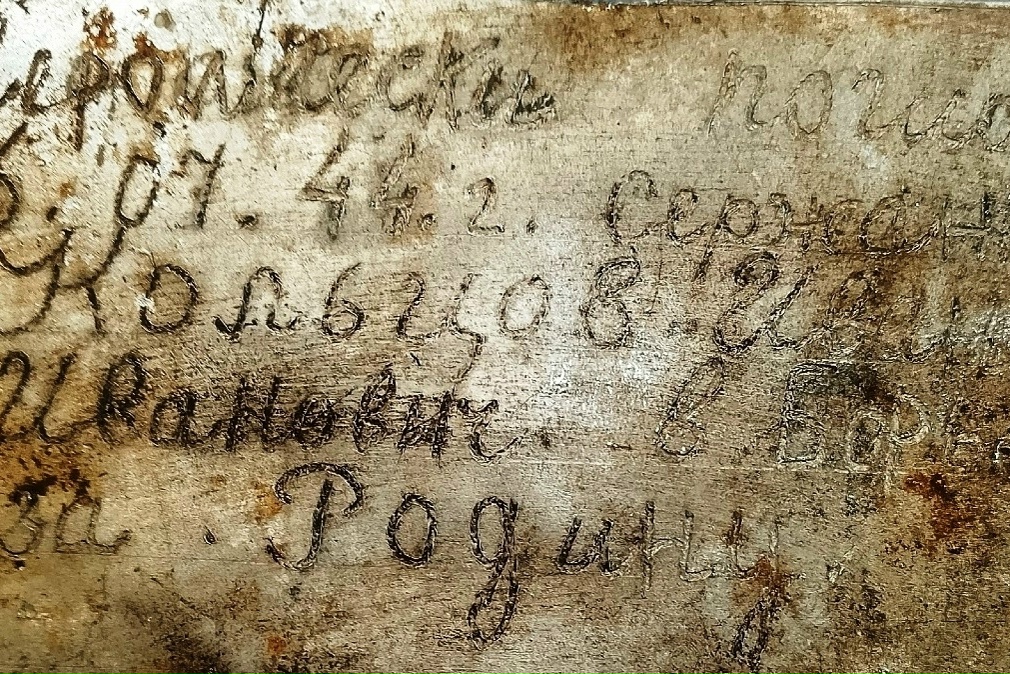 ероически погиб
6.07.44.г. Сержан
Кольцов Иван
Иванович. в Борьбе
за Родину.